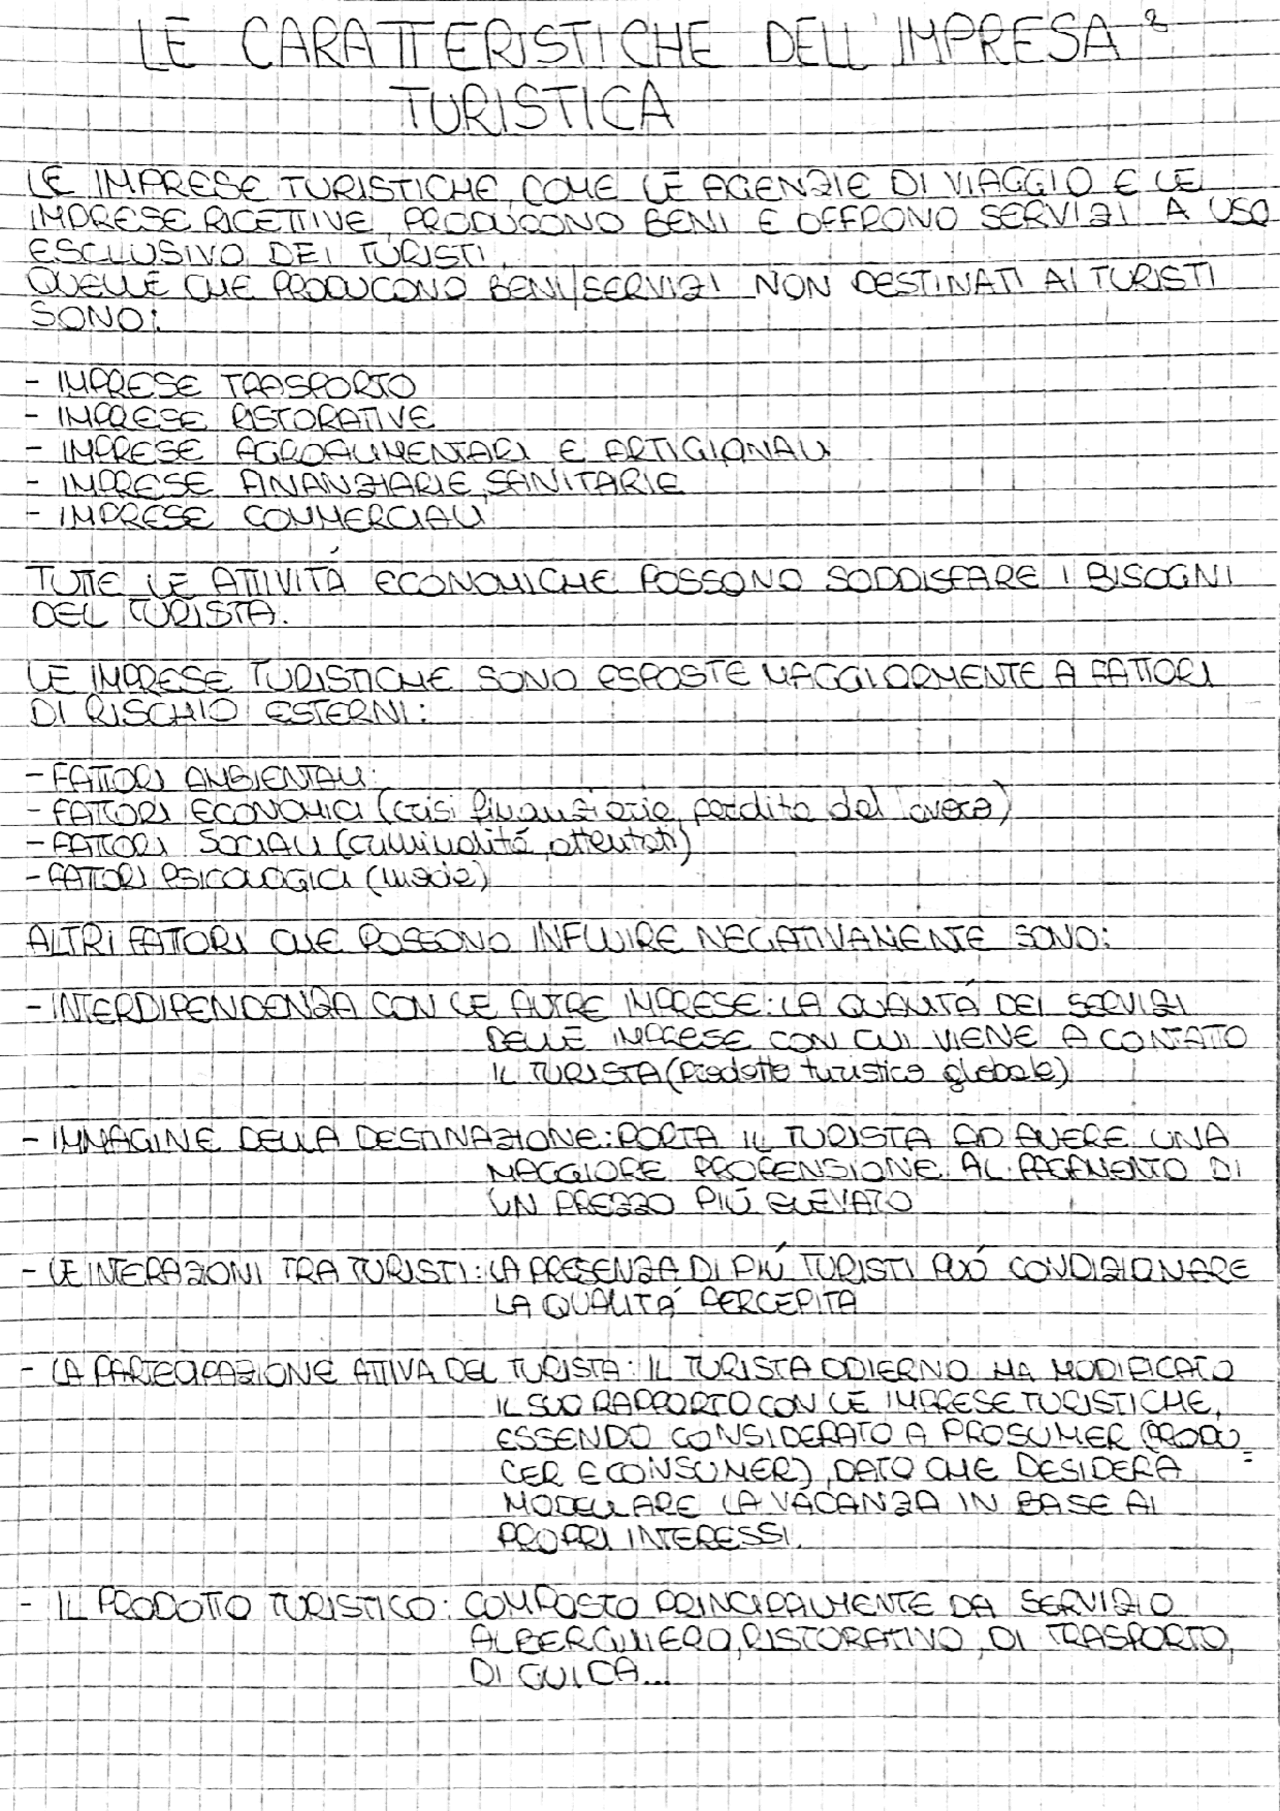 LE CARATTERISTICHE DELL'IMPRESA 2
TURISTICA
LE IMPRESE TURISTICHE, COME LE AGENZIE DI VIAGGIO E LE
IMPRESE RICETTIVE, PRODUCONO BENI E OFFRONO SERVIZI A USO
ESCLUSIVO DEI TURISTI.
QUELLE CHE PRODUCONO BENI/SERVIZI NON DESTINATI AI TURISTI
SONO:
- IMPRESE TRASPORTO
- IMPRESE RISTORATIVE
- IMPRESE AGROALIMENTARI E ARTIGIONALI
- IMPRESE FINANZIARIE, SANITARIE
- IMPRESE COMMERCIALI
TUTTE LE ATTIVITÁ ECONOMICHE POSSONO SODDISFARE I BISOGNI
DEL TURISTA.
LE IMPRESE TURISTICHE SONO ESPOSTE MAGGIORMENTE A FATTORI
DI RISCHIO ESTERNI:
- FATTORI AMBIENTALI:
- FATTORI ECONOMICI (crisi finanziarie, perdita del lavoro)
- FATTORI SOCIALI (criminalitá, attentati)
- FATTORI PSICOLOGICI (mode)
ALTRI FATTORI CHE POSSONO INFLUIRE NEGATIVAMENTE SONO:
- INTERDIPENDENZA CON LE ALTRE IMPRESE: LA QUALITÁ DEI SERVIZI
DELLE IMPRESE CON CUI VIENE A CONTATO
IL TURISTA (Prodotto turistico globale)
- IMMAGINE DELLA DESTINAZIONE: PORTA IL TURISTA AD AVERE UNA
MAGGIORE PROPENSIONE AL PAGAMENTO DI
UN PREZZO PIÚ ELEVATO
- LE INTERAZIONI TRA TURISTI: LA PRESENZA DI PIÚ TURISTI PUÓ CONDIZIONARE
LA QUALITÁ PERCEPITA
- LA PARTECIPAZIONE ATTIVA DEL TURISTA: IL TURISTA ODIERNO HA MODIFICATO
IL SUO RAPPORTO CON LE IMPRESE TURISTICHE,
ESSENDO CONSIDERATO A PROSUMER (PRODU=
CER E CONSUMER), DATO CHE DESIDERA
MODELLARE LA VACANZA IN BASE AI
PROPRI INTERESSI.
- IL PRODOTTO TURISTICO: COMPOSTO PRINCIPALMENTE DA SERVIZIO
ALBERGHIERO, RISTORATIVO, DI TRASPORTO,
DI GUIDA...